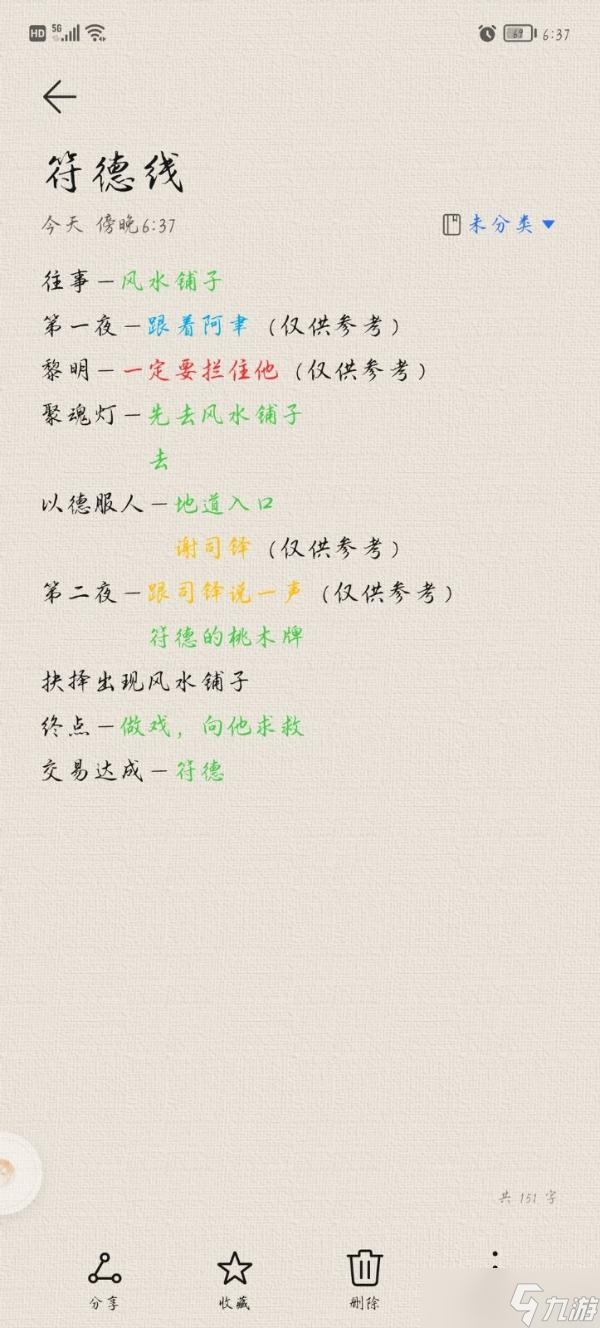 HD 5G 69 6:37
符德线
今天 傍晚6:37 未分类
往事—风水铺子
第一夜—跟着阿聿（仅供参考）
黎明—一定要拦住他（仅供参考）
聚魂灯—先去风水铺子
去
以德服人—地道入口
谢司铎（仅供参考）
第二夜—跟司铎说一声（仅供参考）
符德的桃木牌
抉择出现风水铺子
终点—做戏，向他求救
交易达成—符德
共 151 字
分享 收藏 删除
九游